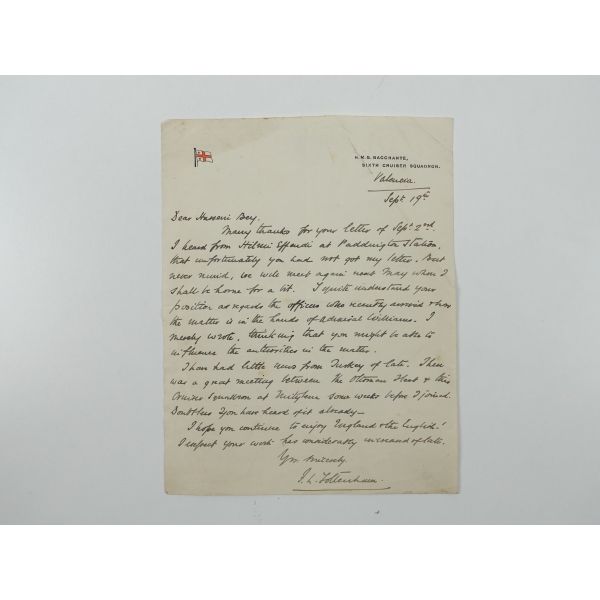 H.M.S. BACCHANTE,
SIXTH CRUISER SQUADRON.
Valencia.
Sept. 19th
Dear Husseini Bey.
Many thanks for your letter of Sept. 2nd.
I heard from Hilmi Effendi at Paddington Station,
that unfortunately you had not got my letter. But
never mind, we will meet again next May when I
shall be home for a bit. I quite understand your
position as regards the officers who recently arrived &
the matter is in the hands of Admiral Williams. I
merely wrote, thinking that you might be able to
influence the authorities in the matter.
I have had little news from Turkey of late. There
was a great meeting between the Ottoman Fleet & this
Cruiser Squadron at Mitylene some weeks before I joined.
Doubtless you have heard of it already—
I hope you continue to enjoy England & the English!
I expect your work has considerably increased of late.
Yrs sincerely.
Tottenham.